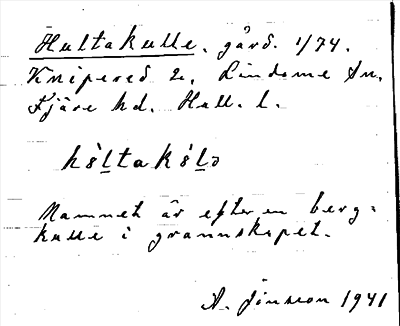 Hultakulle, gård. 1/74.
Knipered 2, Lindome sn,
Fjäre hd. Hall. l.
hòltakòlə
Namnet är efter en berg=
kulle i grannskapet.
A. Jönsson 1941